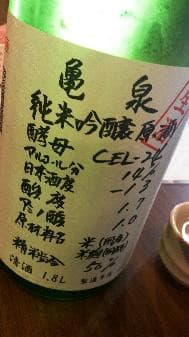 亀泉
純米吟醸原酒
酵母 CEL-24
アルコール分 14.
日本酒度 -13
酸度 1.7
アミノ酸 1.0
原材料名 米(国産)
米麹(国産米)
精米歩合 50%
清酒 1.8L 製造年月